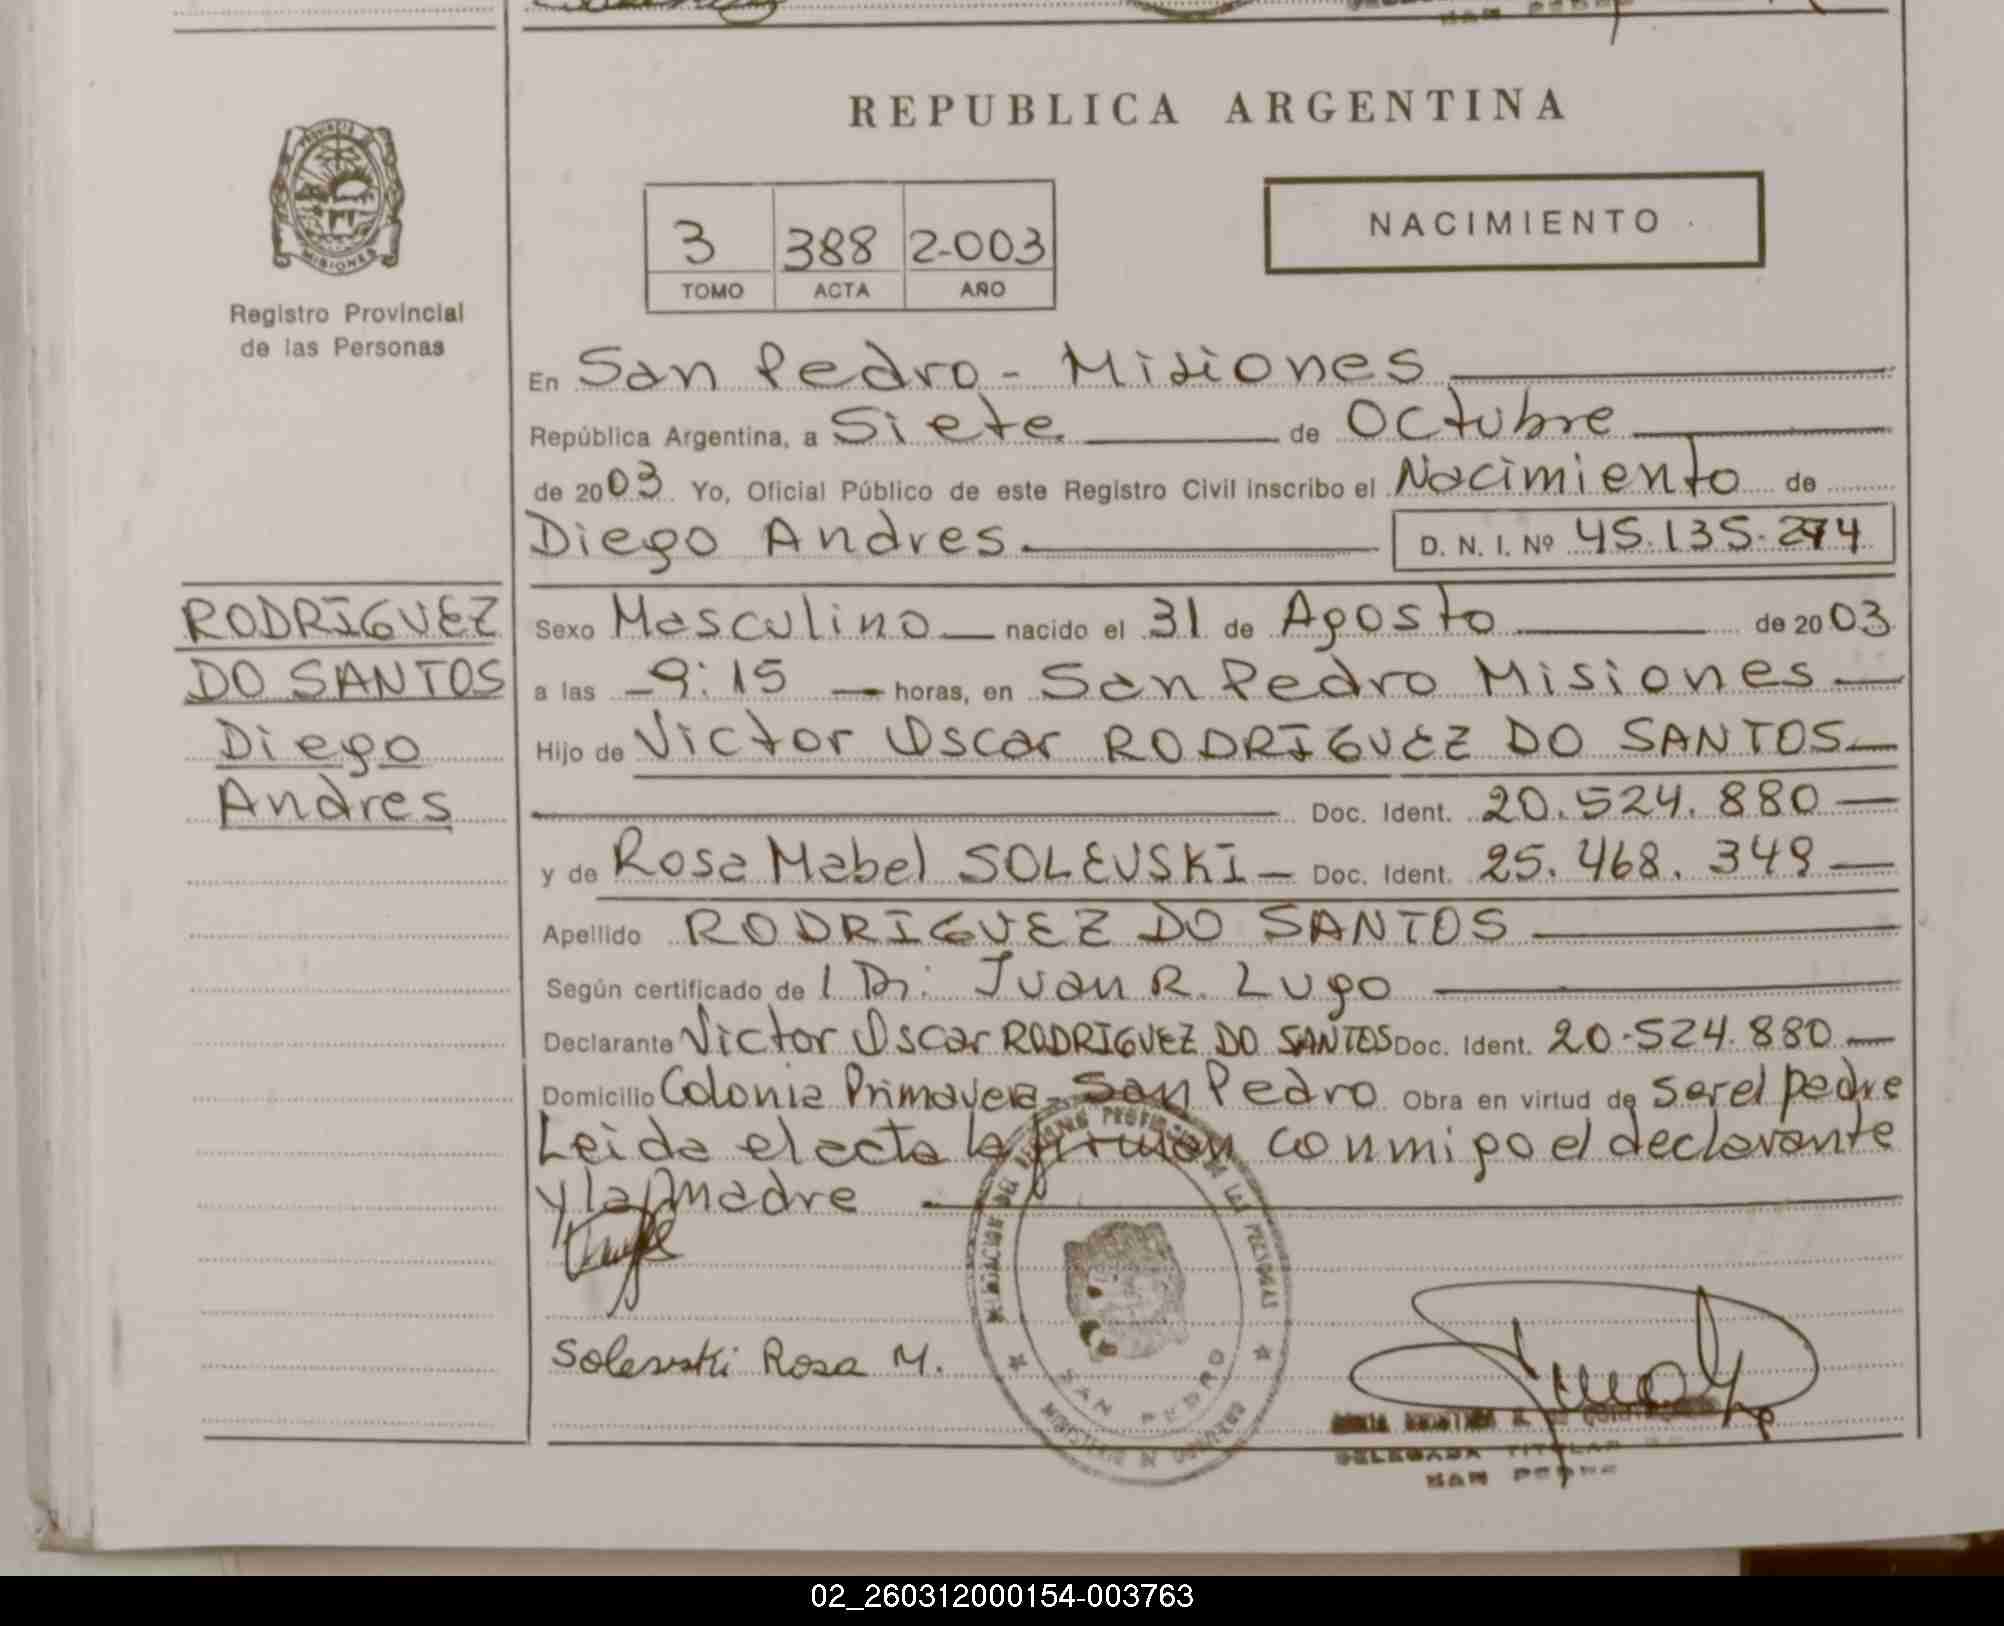 REPUBLICA ARGENTINA
MISIONES
Registro Provincial
de las Personas
NACIMIENTO
3 388 2003
TOMO ACTA AÑO
En San Pedro - Misiones
República Argentina, a Siete de Octubre
de 2003 Yo, Oficial Público de este Registro Civil inscribo el Nacimiento de
Diego Andres D. N. I. Nº 45.135.274
RODRIGUEZ
DO SANTOS
Diego
Andres
Sexo Masculino nacido el 31 de Agosto de 2003
a las 9:15 horas, en San Pedro Misiones
Hijo de Victor Oscar RODRIGUEZ DO SANTOS
Doc. Ident. 20.524.880
y de Rosa Mabel SOLEVSKI Doc. Ident. 25.468.349
Apellido RODRIGUEZ DO SANTOS
Según certificado de l Dr: Juan R. Lugo
Declarante Victor Oscar RODRIGUEZ DO SANTOS Doc. Ident. 20.524.880
Domicilio Colonia Primavera - San Pedro Obra en virtud de ser el padre
Leida el acta la firman conmigo el declarante
y la madre
Solevski Rosa M.
SAN PEDRO
DELEGADA TITULAR
SAN PEDRO
02_260312000154-003763